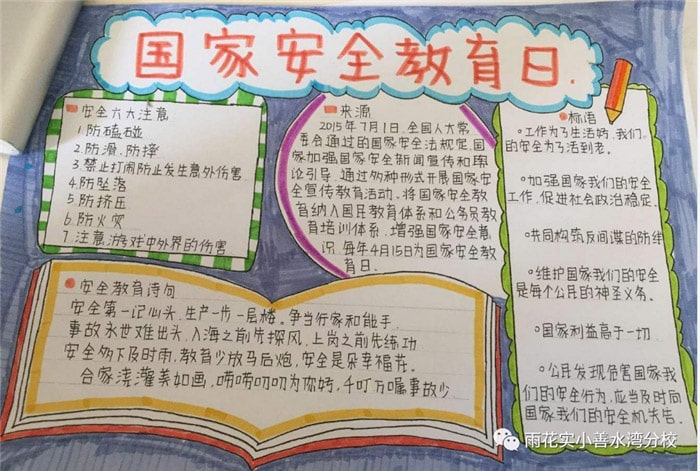 国家安全教育日.
安全六大注意
1.防磕碰
2.防滑、防摔
3.禁止打闹防止发生意外伤害
4.防坠落
5.防挤压
6.防火灾
7.注意游戏中外界的伤害
来源
2015年7月1日,全国人大常
委会通过的国家安全法规定,国
家加强国家安全新闻宣传和舆
论引导,通过多种形式开展国家安
全宣传教育活动。将国家安全教
育纳入国民教育体系和公务员教
育培训体系,增强国家安全意
识。每年4月15日为国家安全教
育日。
标语
工作为了生活好,我们
的安全为了活到老。
加强国家我们的安全
工作,促进社会政治稳定。
共同构筑反间谍的防线
维护国家我们的安全
是每个公民的神圣义务。
国家利益高于一切
公民发现危害国家我
们的安全行为,应当及时向
国家我们的安全机关告。
安全教育诗句
安全第一记心头,生产一步一层楼。争当行家和能手,
事故永世难出头,入海之前先探风,上岗之前先练功
安全如下及时雨,教育少放马后炮,安全是朵幸福花。
合家浇灌美如画,唠唠叨叨为你好,千叮万嘱事故少
雨花实小善水湾分校